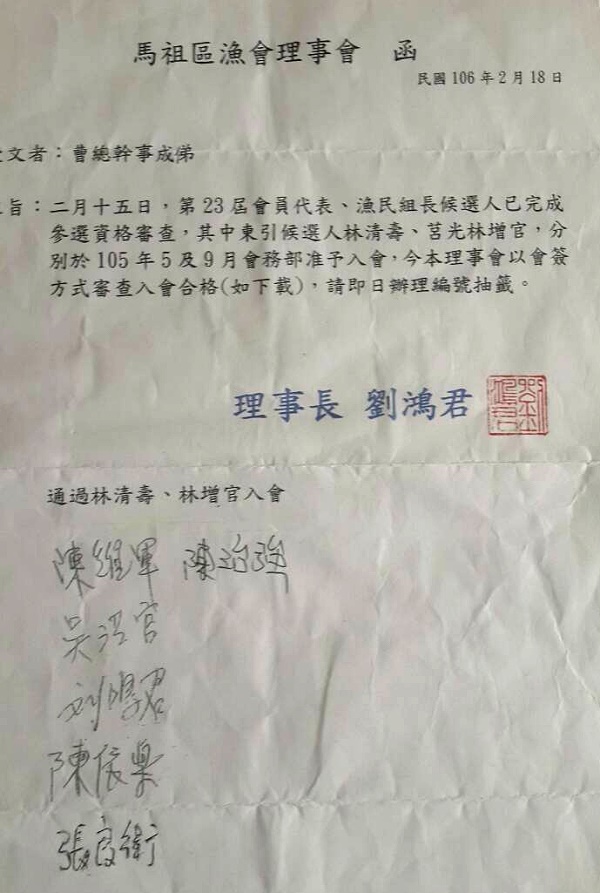 馬祖區漁會理事會 函
民國106年2月18日
文者：曹總幹事成俤
旨：二月十五日，第23屆會員代表、漁民組長候選人已完成
參選資格審查，其中東引候選人林清壽、莒光林增官，分
別於105年5及9月會務部准予入會，今本理事會以會簽
方式審查入會合格(如下載)，請即日辦理編號抽籤。
理事長 劉鴻君
通過林清壽、林增官入會
陳維軍 陳治強
吳江官
刘鴻君
陳依樂
張良衛